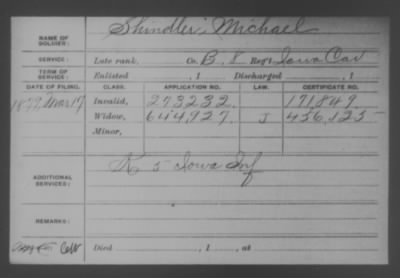 NAME OF SOLDIER: Shindler, Michael
SERVICE: Late rank, Co. B, 8 Reg't Iowa Cav
TERM OF SERVICE: Enlisted , 1 Discharged , 1
DATE OF FILING. CLASS. APPLICATION NO. LAW. CERTIFICATE NO.
1879, Mar 17 Invalid, 273232. 171,849.
Widow, 644,927. J 456,125
Minor,
ADDITIONAL SERVICES: K 5 Iowa Inf
REMARKS:
Died , 1 , at